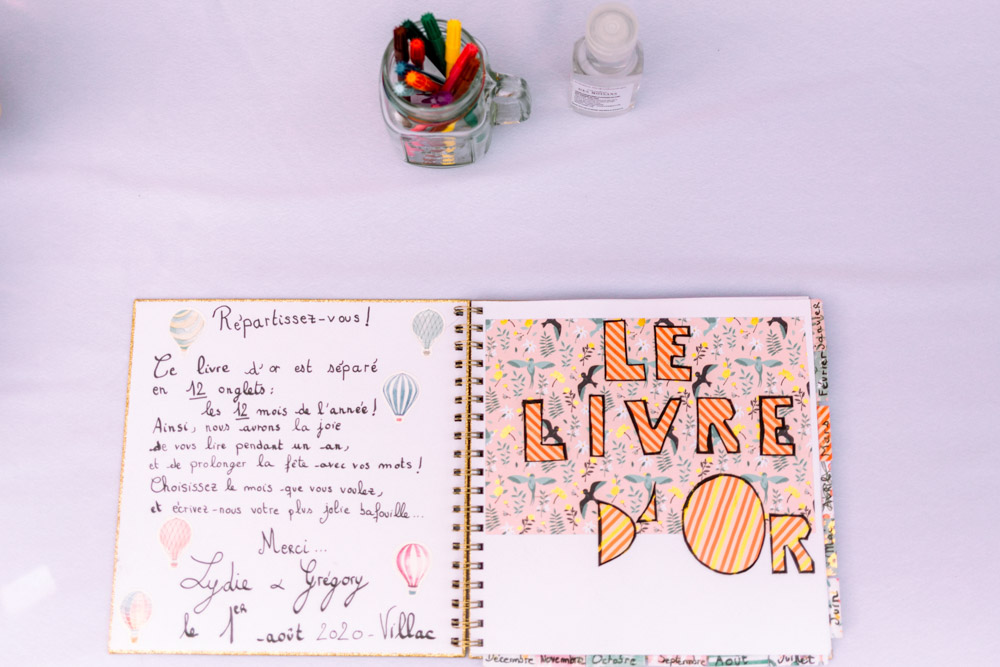 Répartissez-vous !
Ce livre d'or est séparé
en 12 onglets :
les 12 mois de l'année !
Ainsi, nous aurons la joie
de vous lire pendant un an,
et de prolonger la fête avec vos mots !
Choisissez le mois que vous voulez,
et écrivez-nous votre plus jolie bafouille...
Merci...
Lydie & Grégory
le 1er août 2020 - Villac
LE
LIVRE
D'OR
Janvier
Février
Mars
Avril
Mai
Juin
Juillet
Août
Septembre
Octobre
Novembre
Décembre